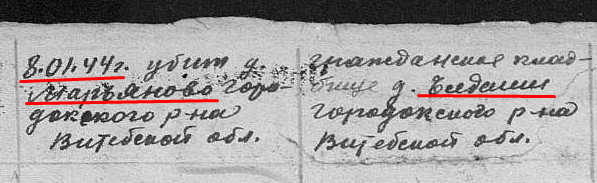 8.01.44г. убит д.
Марьяново горо-
докского р-на
Витебской обл.
гражданское клад-
бище д.
городокского р-на
Витебской обл.